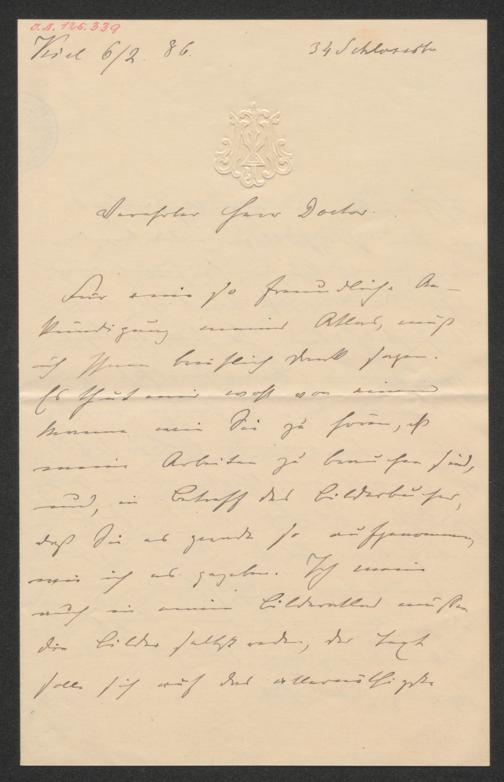 I.N. 125.339
Kiel 6/2. 86. 34 Schlossstr
Verehrter Herr Doctor.
Für eine so freundliche An-
kündigung meines Atlas, muß
ich Ihnen brieflich Dank sagen.
Es thut mir wohl von einem
Manne wie Sie zu hören, daß
meine Arbeiten zu brauchen sind,
und, in Betreff des Bilderbuches,
daß Sie es gerade so aufgenommen,
wie ich es gegeben. Ich meine
auch in einem Bilderatlas müßten
die Bilder selbst reden, der Text
solle sich auf das allernöthigste